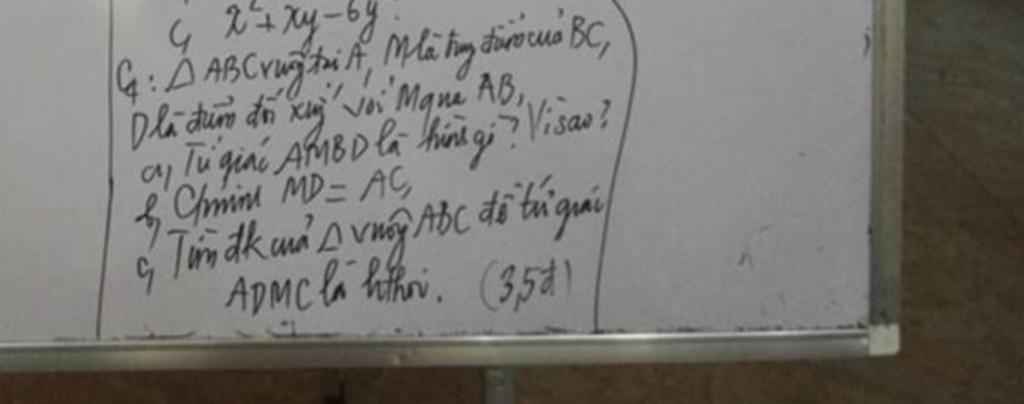 c, x² + xy - 6y²
C4: Δ ABC vuông tại A, M là trung điểm của BC,
D là điểm đối xứng với M qua AB,
a, Tứ giác AMBD là hình gì? Vì sao?
b, C/minh MD = AC,
c, Tìm đk của Δ vuông ABC để tứ giác
ADMC là h.thoi. (3,5đ)